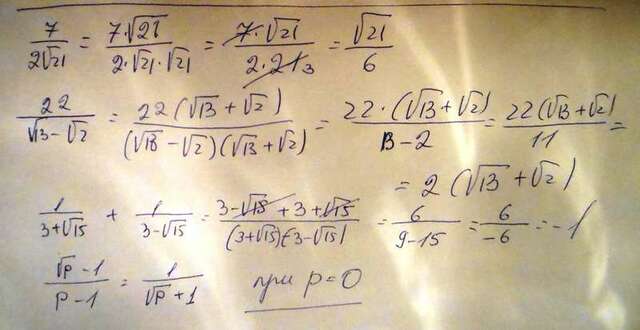 7/(2√21) = (7·√21)/(2·√21·√21) = (7·√21)/(2·21) 3 = √21/6
22/(√13-√2) = 22(√13+√2)/((√13-√2)(√13+√2)) = 22·(√13+√2)/(13-2) = 22(√13+√2)/11 =
= 2(√13+√2)
1/(3+√15) + 1/(3-√15) = (3-√15+3+√15)/((3+√15)(3-√15)) = 6/(9-15) = 6/(-6) = -1
(√p-1)/(p-1) = 1/(√p+1) при p=0